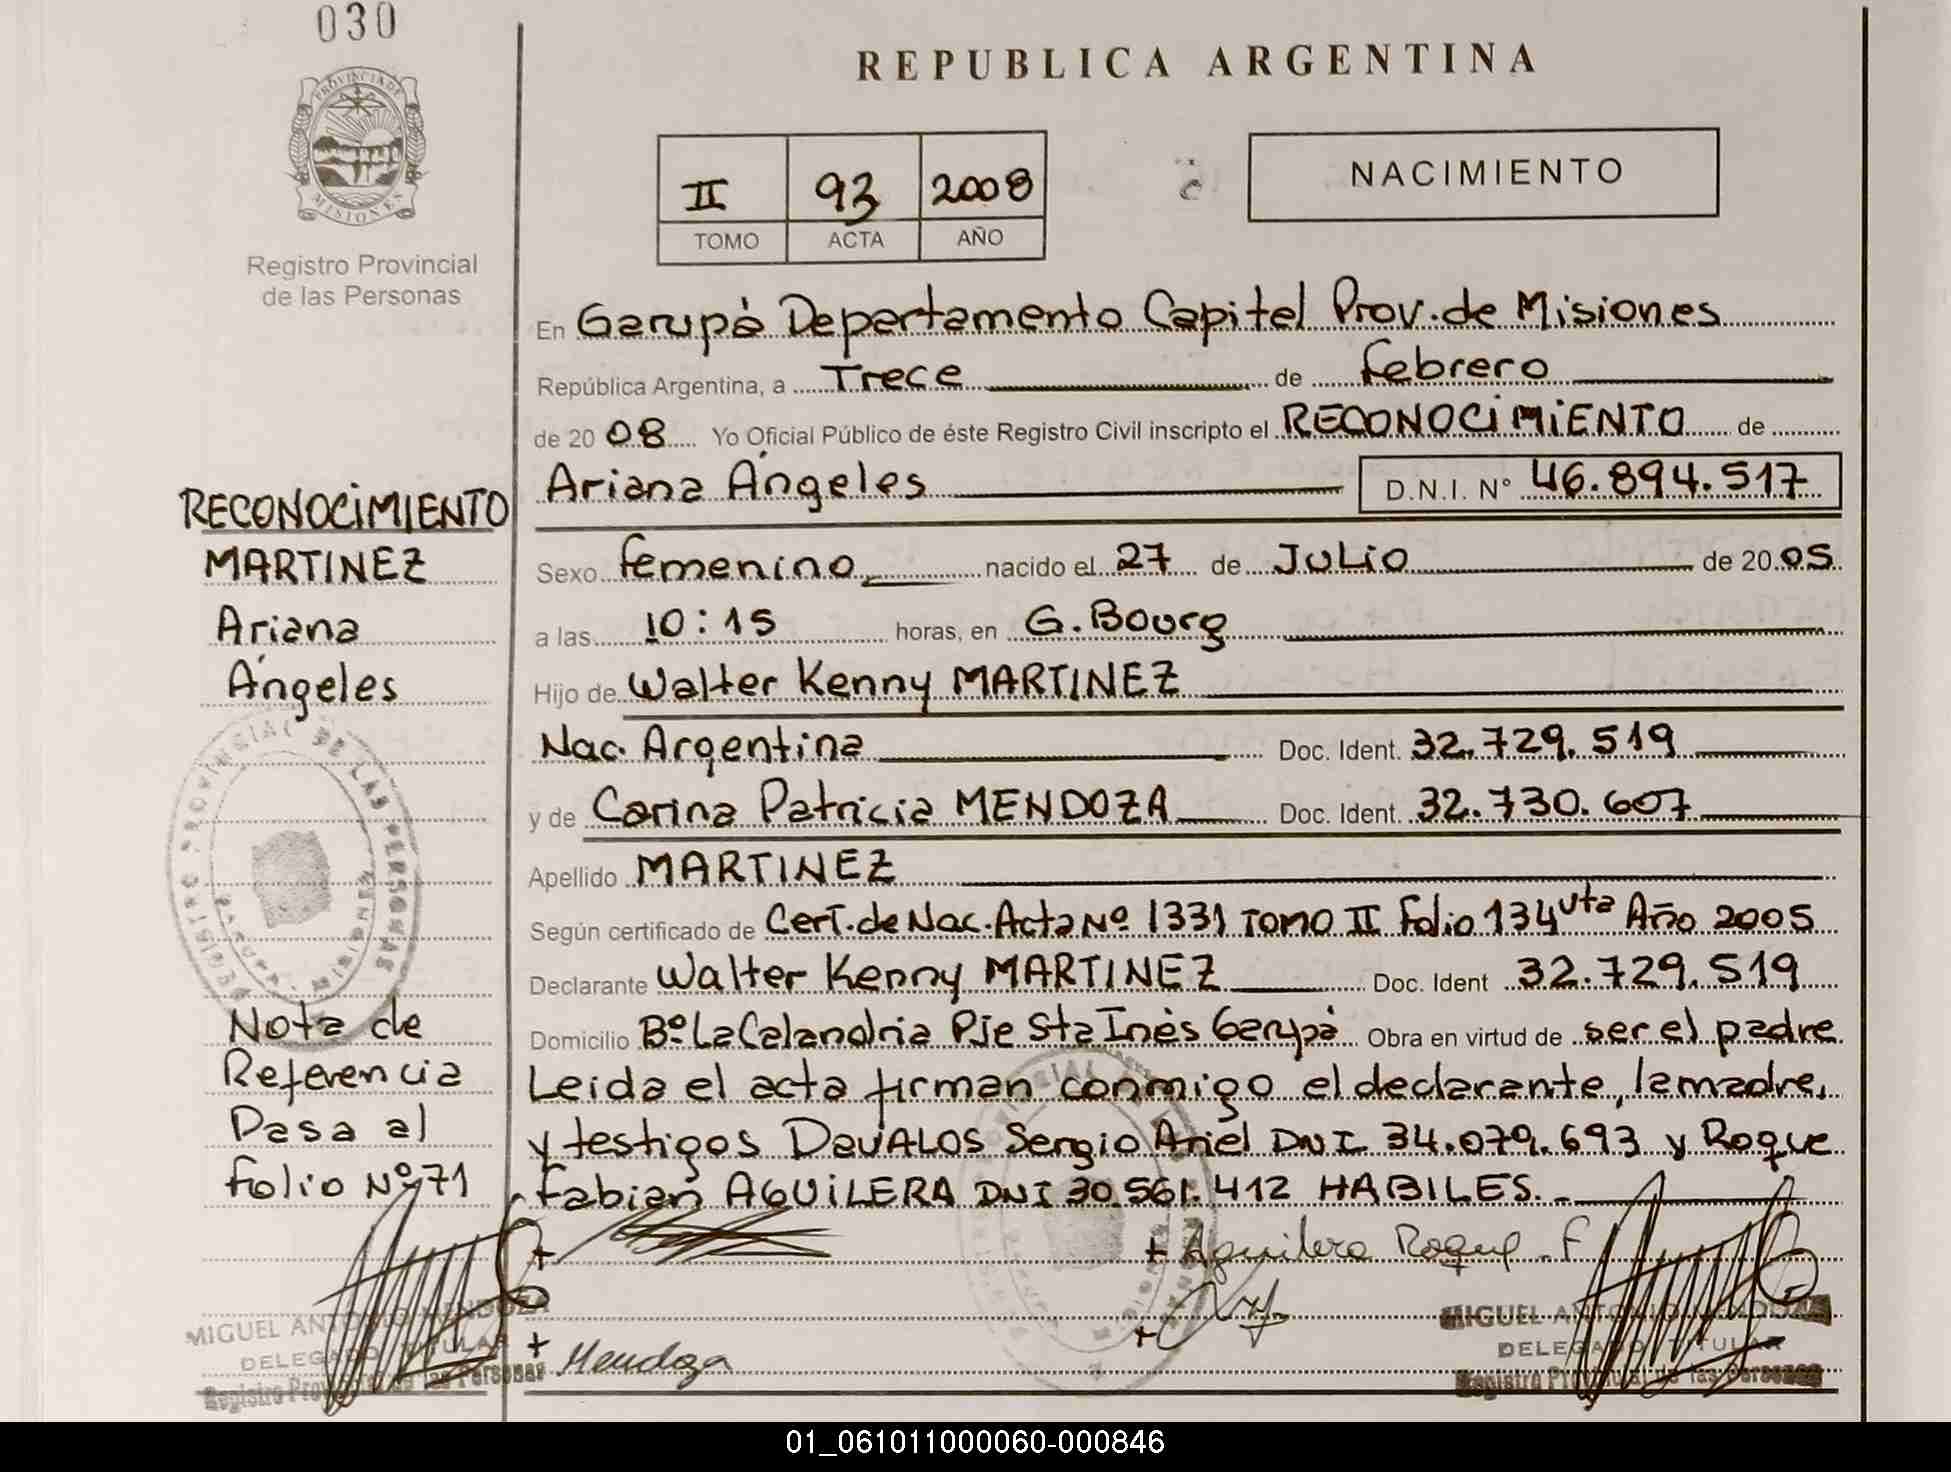 030
PROVINCIA DE
MISIONES
Registro Provincial
de las Personas
REPUBLICA ARGENTINA
II 93 2008
TOMO ACTA AÑO
NACIMIENTO
En Garupá Departamento Capital Prov. de Misiones
República Argentina, a Trece de febrero
de 2008 Yo Oficial Público de éste Registro Civil inscripto el RECONOCIMIENTO de
Ariana Ángeles D.N.I. Nº 46.894.517
Sexo femenino nacido el 27 de JULIO de 2005
a las 10:15 horas, en G. Bourg
Hijo de Walter Kenny MARTINEZ
Nac. Argentina Doc. Ident. 32.729.519
y de Carina Patricia MENDOZA Doc. Ident. 32.730.607
Apellido MARTINEZ
Según certificado de Cert. de Nac. Acta Nº 1331 TOMO II Folio 134 vta Año 2005
Declarante Walter Kenny MARTINEZ Doc. Ident 32.729.519
Domicilio Bº La Calandria Pje Sta Inés Garupá Obra en virtud de ser el padre
Leida el acta firman conmigo el declarante, la madre,
y testigos DavALOS Sergio Ariel DNI 34.079.693 y Roque
Fabian AGUILERA DNI 30.561.412 HABILES.
RECONOCIMIENTO
MARTINEZ
Ariana
Ángeles
REGISTRO PROVINCIAL DE LAS PERSONAS
Nota de
Referencia
Pasa al
folio Nº 71
+ Aguilera Roque F
+ Mendoza
MIGUEL ANTONIO MENDOZA
DELEGADO TITULAR
Registro Provincial de las Personas
MIGUEL ANTONIO MENDOZA
DELEGADO TITULAR
Registro Provincial de las Personas
01_061011000060-000846